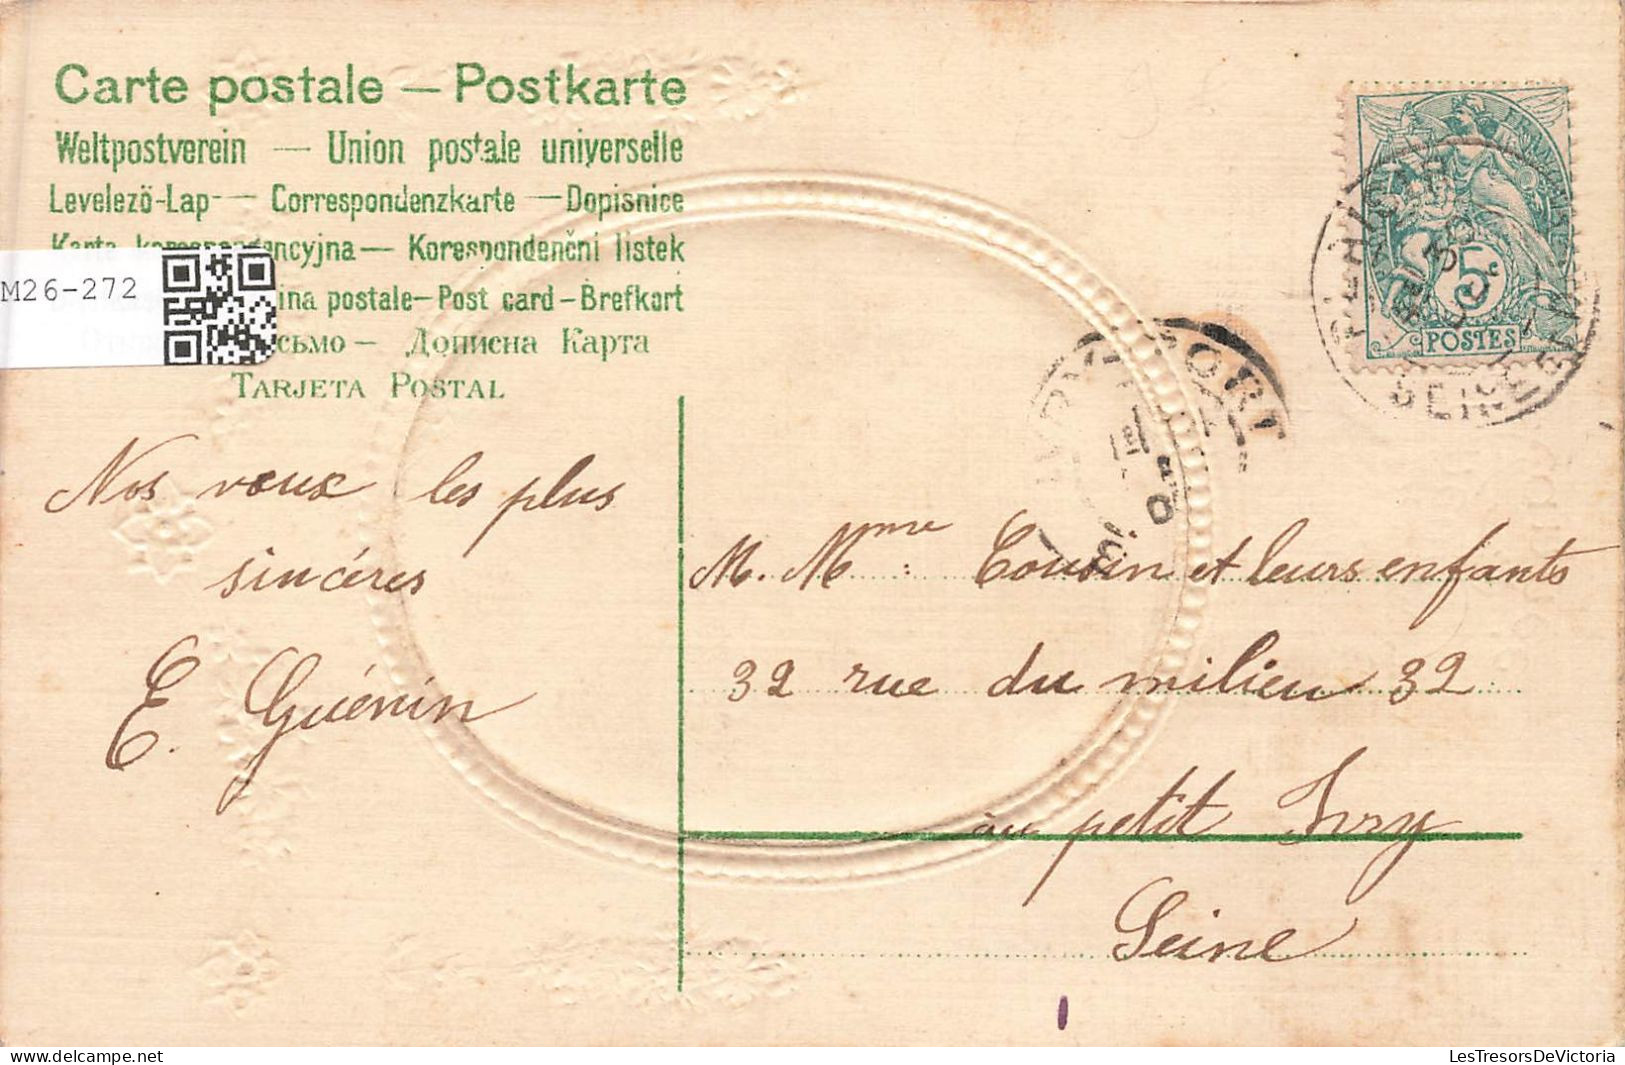 Carte postale — Postkarte
Weltpostverein — Union postale universelle
Levelezö-Lap — Correspondenzkarte — Dopisnice
Karta korespondencyjna — Korespondenční listek
ina postale — Post card — Brefkort
сьмо — Дописна Карта
TARJETA POSTAL
M26-272
POSTES
5c
SEINE
PORT
Nos vœux les plus
sincéres
E. Guénin
M. Mme Cousin et leurs enfants
32 rue du milieu 32
au petit Ivry
Seine
LesTresorsDeVictoria